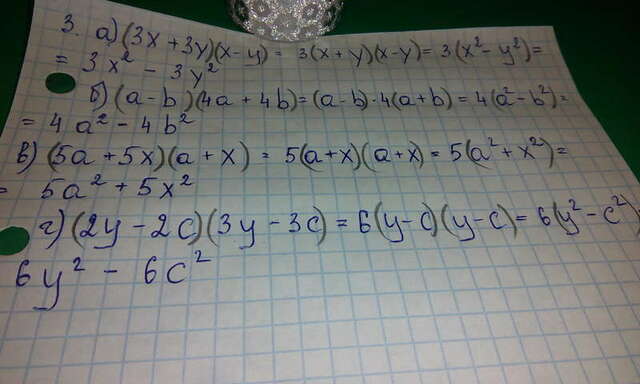 3. а) (3x + 3y)(x - y) = 3(x + y)(x - y) = 3(x² - y²) =
= 3x² - 3y²
б) (a - b)(4a + 4b) = (a - b) · 4(a + b) = 4(a² - b²) =
= 4a² - 4b²
в) (5a + 5x)(a + x) = 5(a + x)(a + x) = 5(a² + x²) =
= 5a² + 5x²
г) (2y - 2c)(3y - 3c) = 6(y - c)(y - c) = 6(y² - c²)
6y² - 6c²